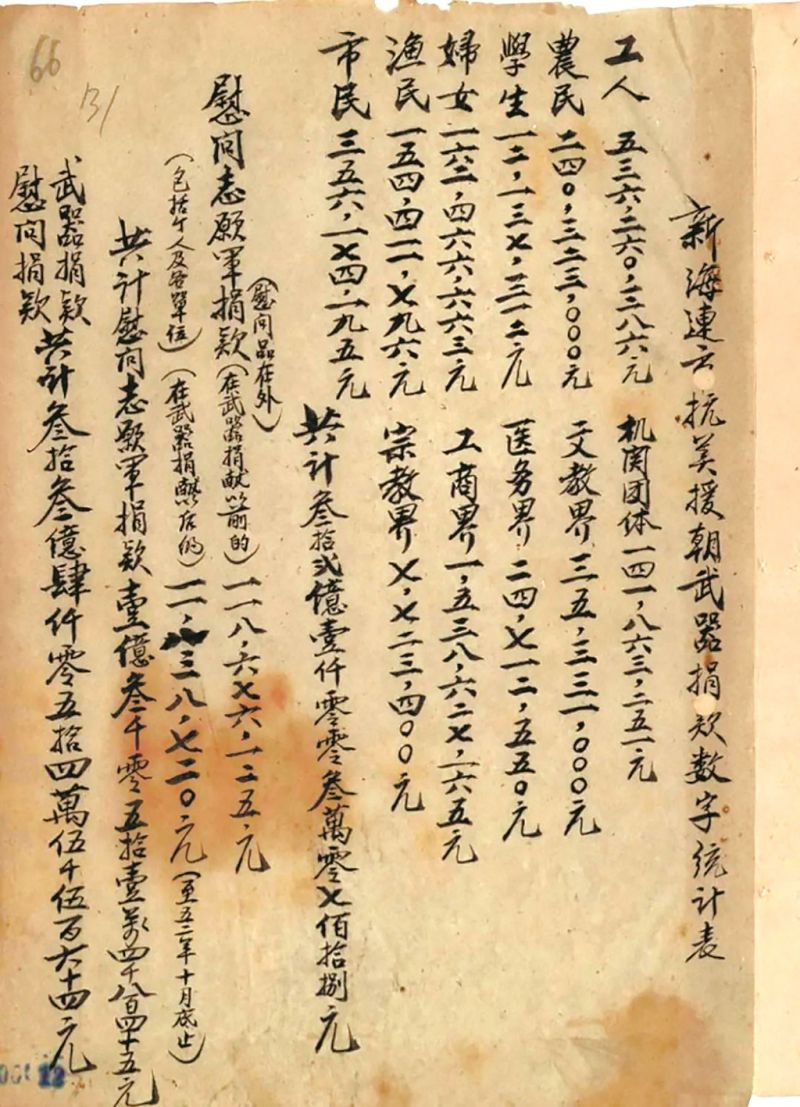 新海連云抗美援朝武器捐欵数字統计表
工人 五三六,二六〇,三八六元 机関团体一四一,八六三,二五一元
農民 二四〇,三二三,〇〇〇元 文教界 三五,三三一,〇〇〇元
學生 一二,一三七,三一二元 医务界 二四,七一二,五五〇元
婦女 一六二,四六六,六六三元 工商界 一,五三八,六二七,二六五元
漁民 一五四,四一一,七九六元 宗教界 七,七二三,四〇〇元
市民 三五六,一七四,一九五元
共计叁拾弍億壹仟零零叁萬零七佰拾捌元
(慰问品在外)
慰问志願軍捐欵(在武器捐献以前的)一一八,六七六,一二五元
(包括个人及各單位)(在武器捐献以后的)一一,八三八,七二〇元(至五二年十月底止)
共计慰问志愿軍捐欵壹億叁千零五拾壹萬四千八百四十五元
武器捐欵
慰问捐欵
共计叁拾叁億肆仟零五拾四萬伍千伍百六十四元
66
131